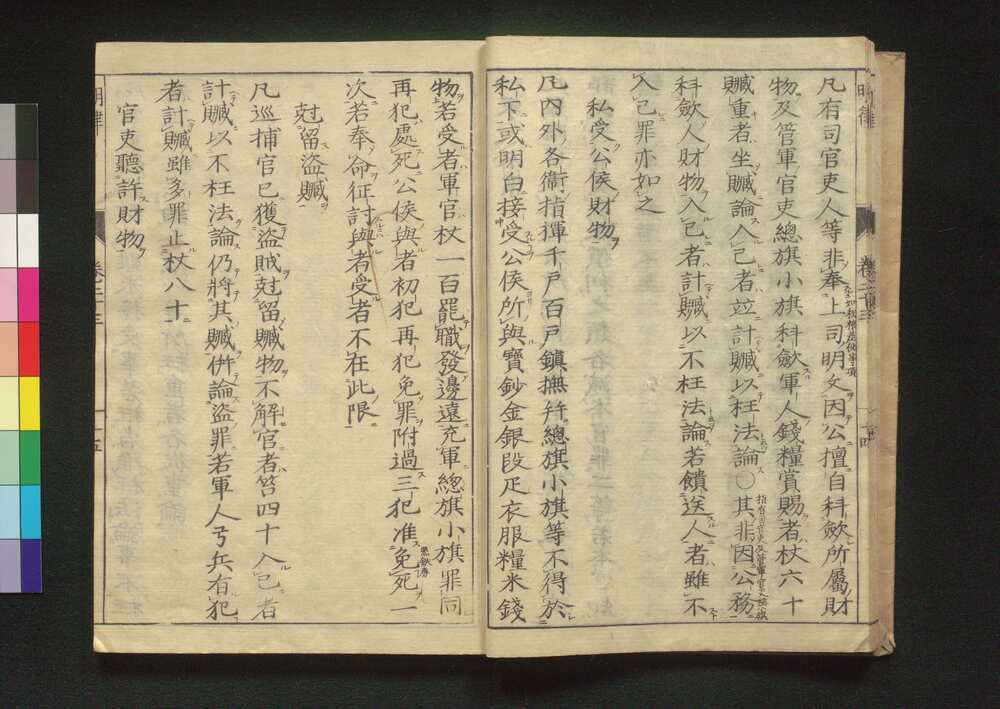 凡有司官吏人等非奉上司明文因公擅自科歛所屬財
物及管軍官吏總旗小旗科歛軍人錢糧賞賜者杖六十
贓重者坐贓論入己者並計贓以枉法論○其非因公務
科歛人財物入己者計贓以不枉法論若饋送人者雖不
入己罪亦如之
私受公侯財物
凡內外各衞指揮千戶百戶鎮撫幷總旗小旗等不得於
私下或明白接受公侯所與寶鈔金銀段疋衣服糧米錢
物若受者軍官杖一百罷職發邊遠充軍總旗小旗罪同
再犯處死公侯與者初犯再犯免罪附過三犯准免死一
次若奉命征討與者受者不在此限
尅留盜贓
凡巡捕官已獲盜賊尅留贓物不解官者笞四十入己者
計贓以不枉法論仍將其贓併論盜罪若軍人弓兵有犯
者計贓雖多罪止杖八十
官吏聽許財物
明律
卷二十三
十五